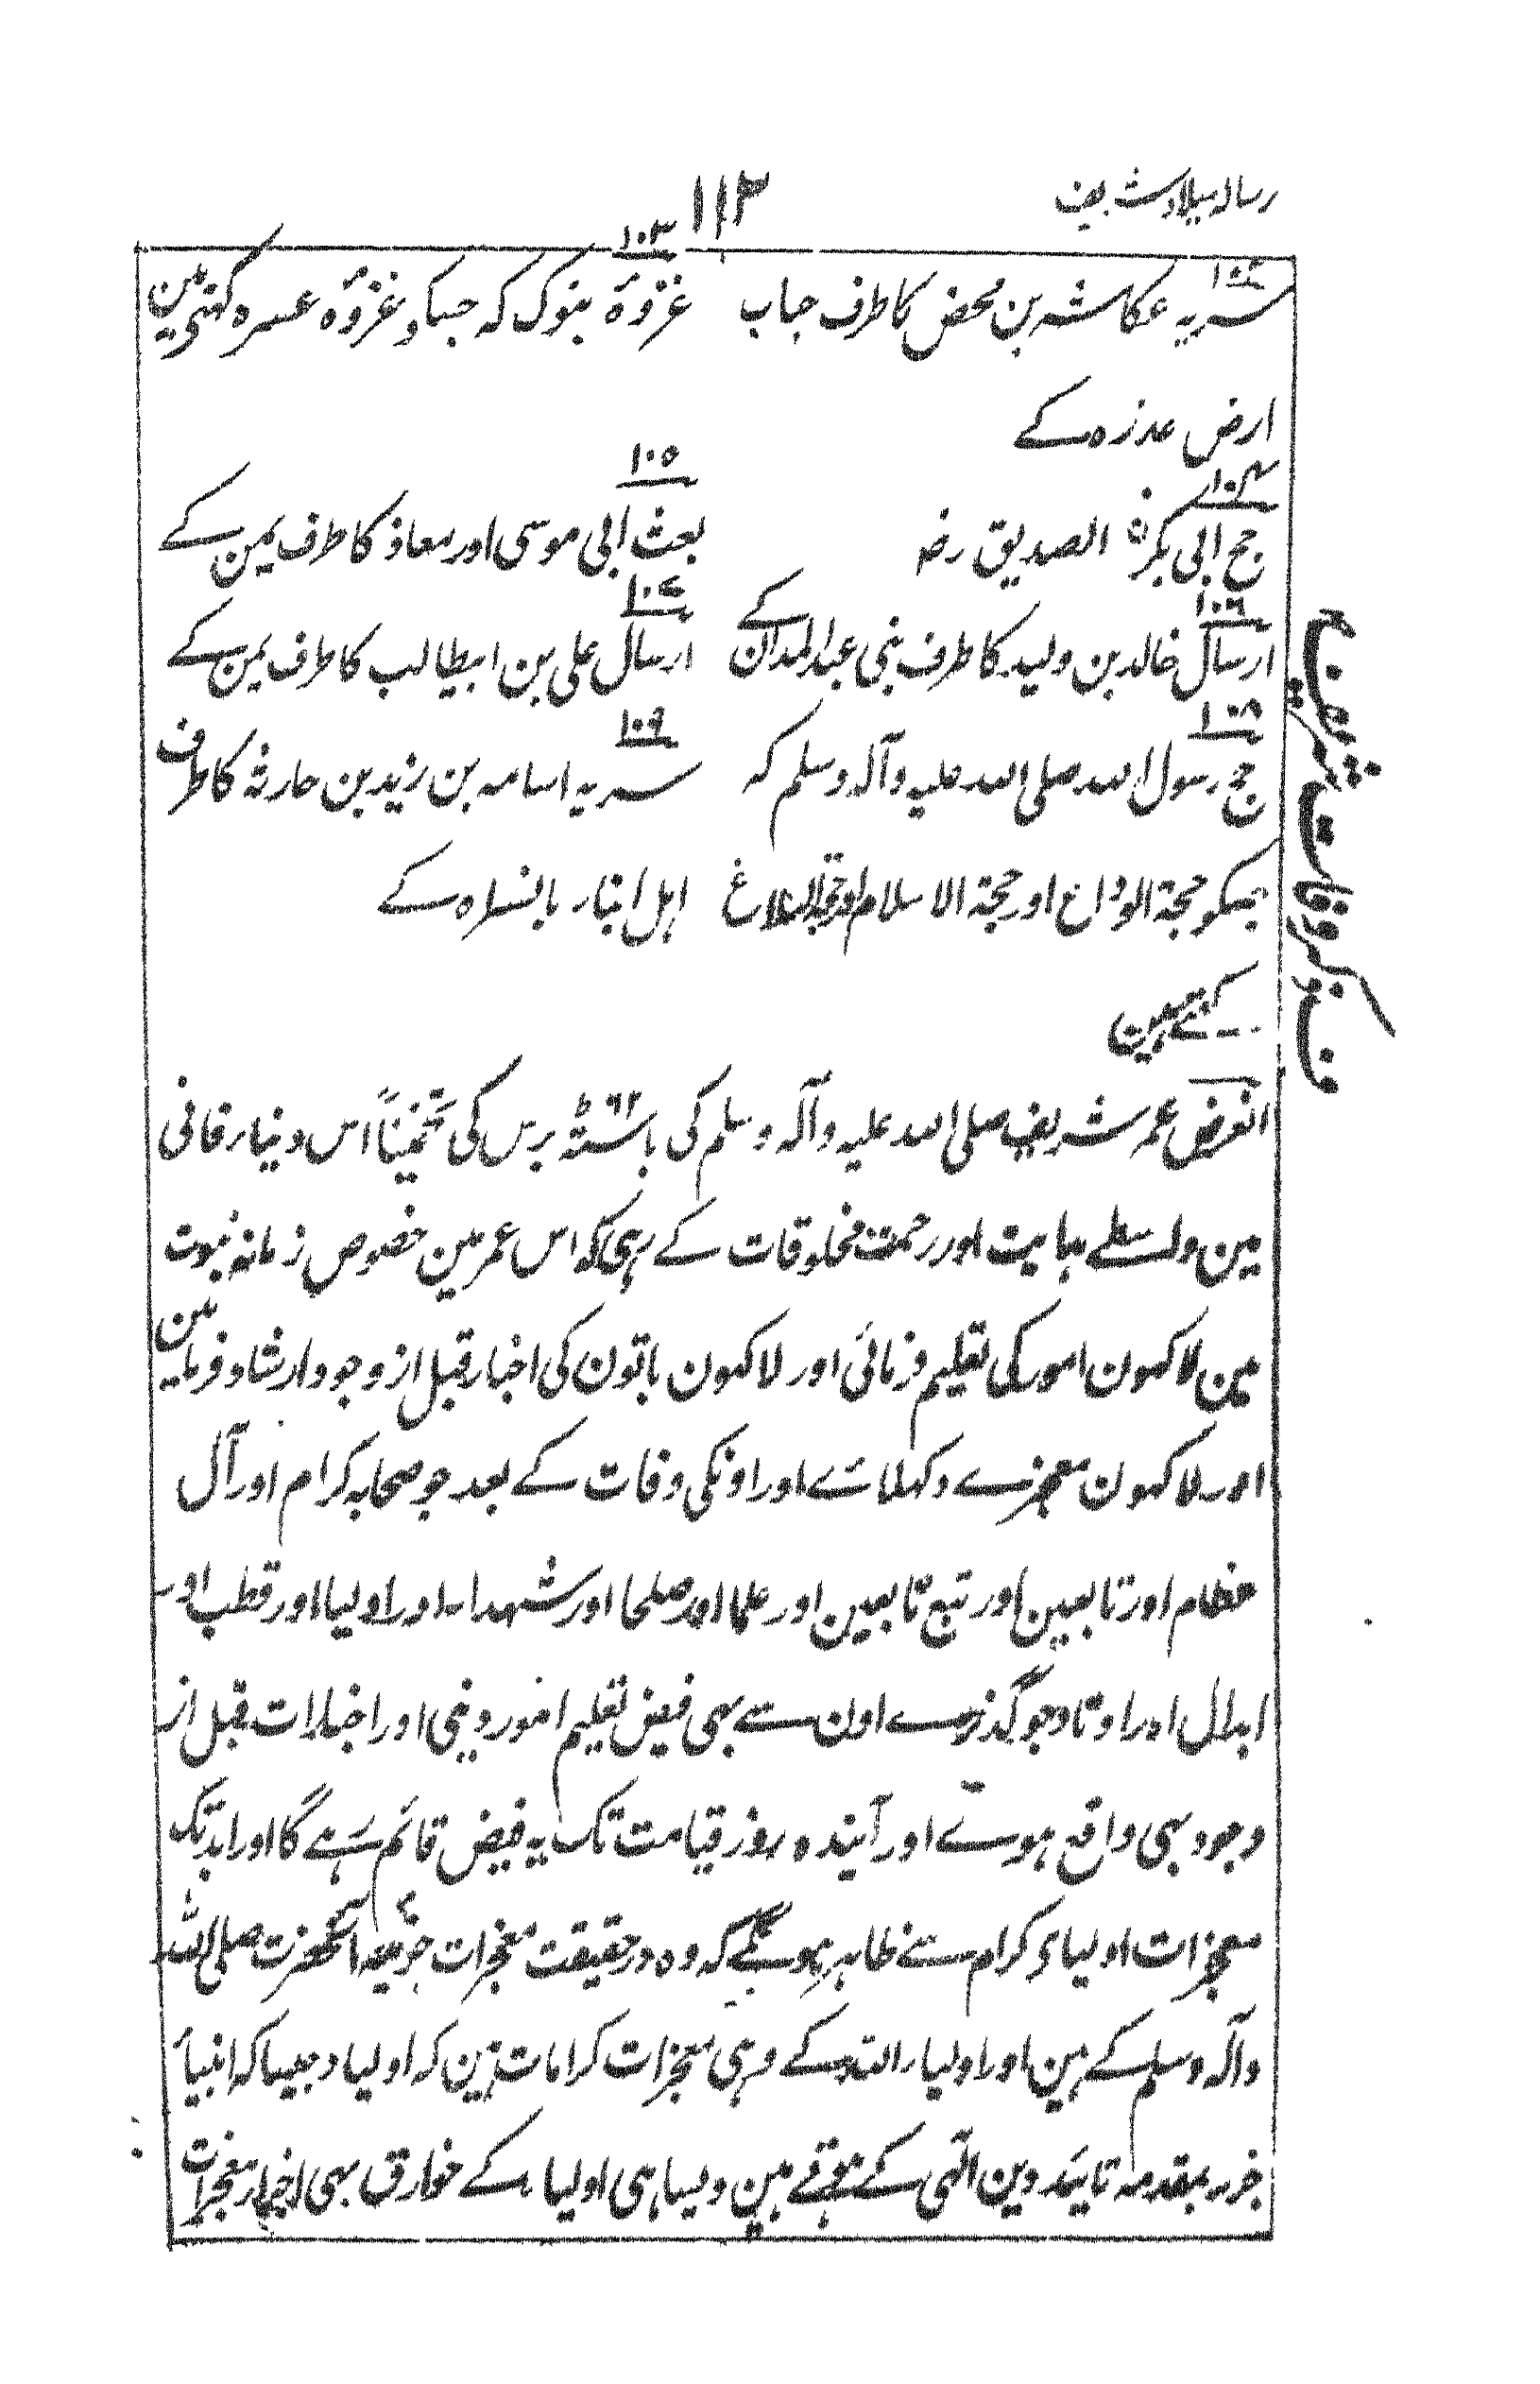 رسالہ میلاد شریف
۱۱۳
۱۰۲
سریہ عکاشہ بن محض کا طرف جباب
ارض عذرہ کے
۱۰۳
غزوۂ تبوک کہ جسکو غزوۂ عسرہ کہتی ہین
۱۰۴
حج ابی بکرن الصدیق رضہ
۱۰۵
بعث ابی موسی اور معاذ کا طرف یمن کے
۱۰۶
ارسال خالد بن ولید کا طرف بنی عبد المدان کے
۱۰۷
ارسال علی بن ابیطالب کا طرف یمن کے
۱۰۸
حج رسول اللہ صلی اللہ علیہ وآلہ وسلم کہ
جسکو حجۃ الوداع اور حجۃ الاسلام اور حجۃ البلاغ
کہتے ہین
۱۰۹
سریہ اسامہ بن زید بن حارثہ کا طرف
اہل ابنار بالسراہ کے
ف ذکر وفات شریف
الغرض عمر شریف صلی اللہ علیہ وآلہ وسلم کی باسٹھ ۶۲ برس کی تخمیناً اس دنیا فانی
مین واسطے ہدایت اور رحمت مخلوقات کے رہی کہ اس عمر مین خصوص زمانہ نبوت
مین لاکہون امور کی تعلیم فرمائی اور لاکہون باتون کی اخبار قبل از وجود ارشاد فرمایہ ہین
اور لاکہون معجزے دکہلائے اور اونکی وفات کے بعد جو صحابہ کرام اور آل
عظام اور تابعین اور تبع تابعین اور علما اور صلحا اور شہدا اور اولیا اور قطب اور
ابدال اور اوتاد جو گذرے اون سے بہی فیض تعلیم امور دینی اور اخبارات قبل از
وجود بہی واقع ہوے اور آیندہ روز قیامت تک یہ فیض قائم رہے گا اور ابد تک
معجزات اولیاء کرام سے ظاہر ہوینگے کہ وہ در حقیقت معجزات آنحضرت صلی اللہ
وآلہ وسلم کے ہین اور اولیاء اللہ کے وہی معجزات کرامات ہین کہ اولیا جیسا کہ انبیا
بمقدمہ تائید دین الٰہی کے ہوتے ہین ویسا ہی اولیا کے خوارق بہی اخبار معجزات